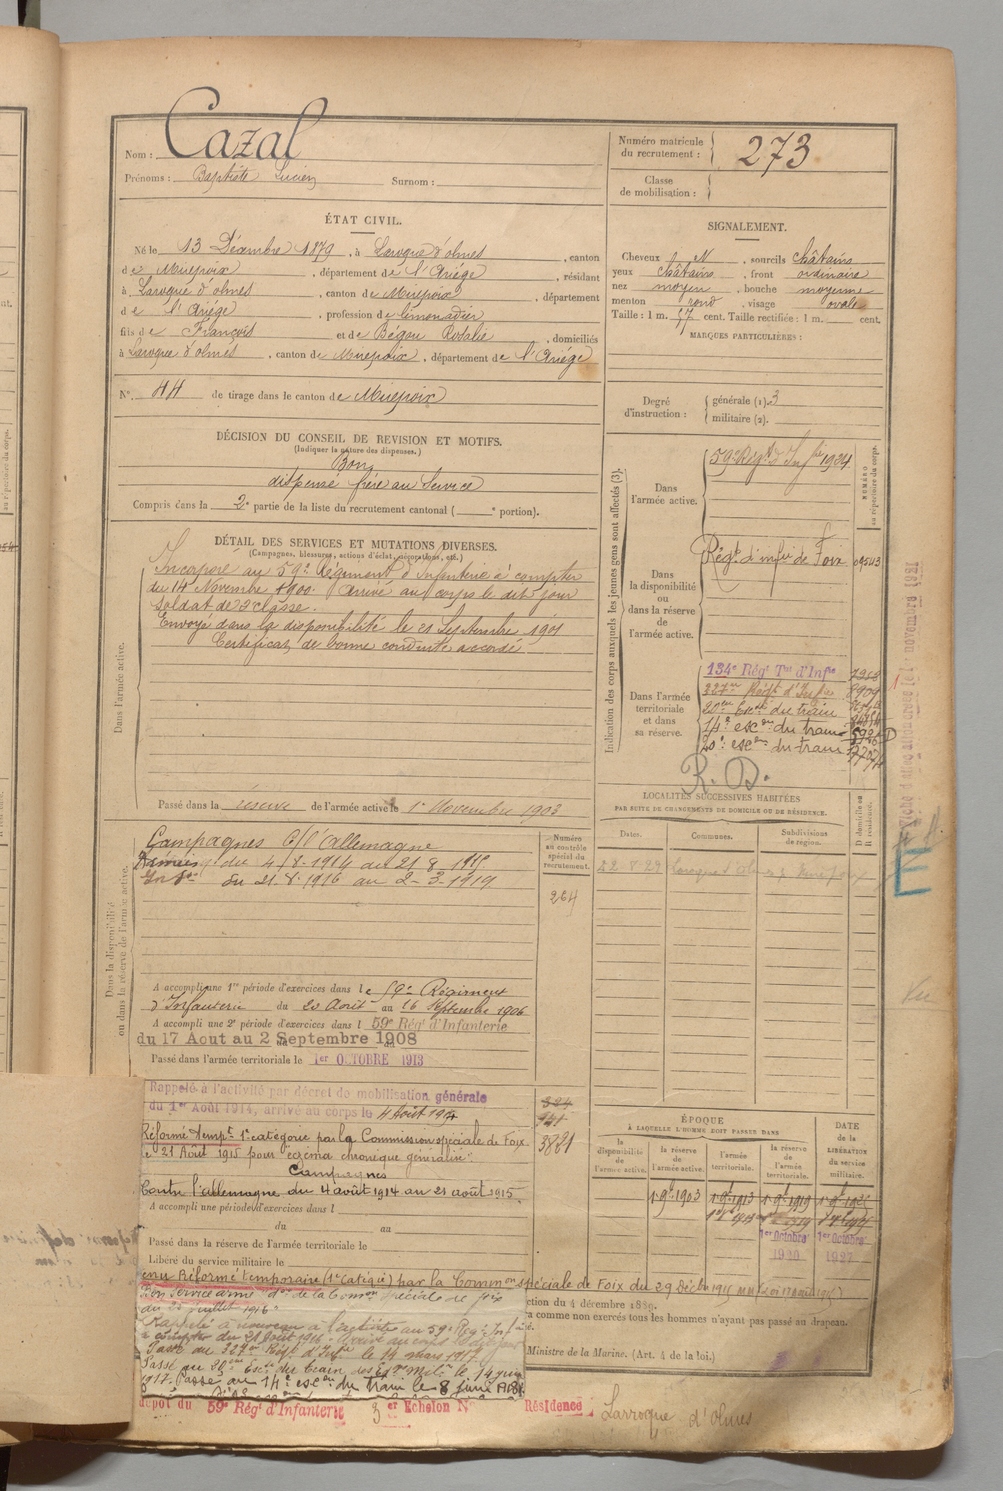 Nom : Cazal
Prénoms : Baptiste Lucien Surnom :
Numéro matricule du recrutement : 273
Classe de mobilisation :
ÉTAT CIVIL.
Né le 13 Décembre 1879, à Laroque d'olmes, canton
de Mirepoix, département de l'Ariége, résidant
à Laroque d'olmes, canton de Mirepoix, département
de l'Ariége, profession de limonadier
fils de François et de Bégou Rosalie, domiciliés
à Laroque d'olmes, canton de Mirepoix, département de l'Ariége
N° 44 de tirage dans le canton de Mirepoix
SIGNALEMENT.
Cheveux N, sourcils châtains
yeux châtains, front ordinaire
nez moyen, bouche moyenne
menton rond, visage ovale
Taille : 1 m. 57 cent. Taille rectifiée : 1 m. cent.
MARQUES PARTICULIÈRES :
Degré d'instruction : générale (1). 3
militaire (2).
DÉCISION DU CONSEIL DE REVISION ET MOTIFS.
(Indiquer la nature des dispenses.)
Bon
dispensé frère au Service
Compris dans la 2e partie de la liste du recrutement cantonal ( e portion).
DÉTAIL DES SERVICES ET MUTATIONS DIVERSES.
(Campagnes, blessures, actions d'éclat, décorations, etc.)
Dans l'armée active.
Incorporé au 59e Régiment d'Infanterie à compter
du 14 Novembre 1900. Arrivé au corps le dit jour
soldat de 2e classe.
Envoyé dans la disponibilité le 21 Septembre 1901
Certificat de bonne conduite accordé
Passé dans la réserve de l'armée active le 1er Novembre 1903
Indication des corps auxquels les jeunes gens sont affectés (3).
NUMÉRO au répertoire du corps.
Dans l'armée active.
59e Régt d'Infrie 1924
Dans la disponibilité ou dans la réserve de l'armée active.
Régt d'infie de Foix 09543
Dans l'armée territoriale et dans sa réserve.
134e Régt Tal d'Infie
327me Régt d'Infie 8909
20em Escon du train
14e escon du train
20e escon du train
R. D.
LOCALITÉS SUCCESSIVES HABITÉES
PAR SUITE DE CHANGEMENTS DE DOMICILE OU DE RÉSIDENCE.
Dates. Communes. Subdivisions de région. D domicile ou R résidence.
Dans la disponibilité ou dans la réserve de l'armée active.
Numéro au contrôle spécial du recrutement.
264
Campagnes C/ l'Allemagne
du 4-8-1914 au 21-8-1915
du 21-8-1916 au 2-3-1919
A accompli une 1re période d'exercices dans le 59e Régiment
d'Infanterie du 20 Août au 16 Septembre 1906
A accompli une 2e période d'exercices dans l 59e Régt d'Infanterie
du 17 Aout au 2 Septembre 1908
Passé dans l'armée territoriale le 1er OCTOBRE 1913
Rappelé à l'activité par décret de mobilisation générale
du 1er Août 1914, arrivé au corps le 4 Août 1914
324
941
3821
Réformé tempre 1e catégorie par la Commission spéciale de Foix
le 21 Août 1915 pour eczéma chronique généralisé.
Campagnes
Contre l'allemagne du 4 août 1914 au 21 août 1915.
A accompli une période d'exercices dans l
du au
Passé dans la réserve de l'armée territoriale le
Libéré du service militaire le
ÉPOQUE
À LAQUELLE L'HOMME DOIT PASSER DANS
la disponibilité de l'armée active. la réserve de l'armée active. l'armée territoriale. la réserve de l'armée territoriale.
DATE de la LIBÉRATION du service militaire.
1er Octobre 1920
1er Octobre 1927
Réformé temporaire (1e catégie) par la Common spéciale de Foix du 29 Décbre 1915
Bon service armé don de la Common Spéciale de Foix
du 21 juillet 1916
Rappelé à nouveau à l'activité au 59e Régt Infie
à compter du 21 Août 1916
Passé au 327me Régt d'Infie le 14 mars 1917
Passé au 20me Escon du train le 14 juin
1917. Passé au 14e escon du train le 8 juin 1918
ction du 4 décembre 1889.
a comme non exercés tous les hommes n'ayant pas passé au drapeau.
Ministre de la Marine. (Art. 4 de la loi.)
dépot du 59e Régt d'Infanterie 3 er Echelon N° Résidence Larroque d'olmes